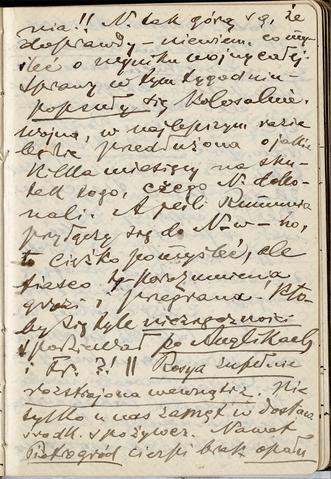 nia!! N. tak górą są, że
doprawdy – niewiem co my-
śleć o wyniku wojny całej.
Sprawy w tym tygodniu –
popsuły się kolosalnie.
Wojna, w najlepszym razie
będzie przedłużona o jakie
kilka miesięcy na sku-
tek tego, czego N. doko-
nali. A jeśli Rumunia
przyłączy się do N-w – no,
to ciężko pomyśleć, ale
fiasco porozumienia
grozi i przegrana! Kto-
by się tyle niezgodności
spodziewał po Anglikach
i Fr. ?! || Rosya zupełnie
rozstrojona wewnątrz. Nie
tylko u nas zamęt w dostawie
środk. spożywcz. Nawet
Piotrogród cierpi brak opału